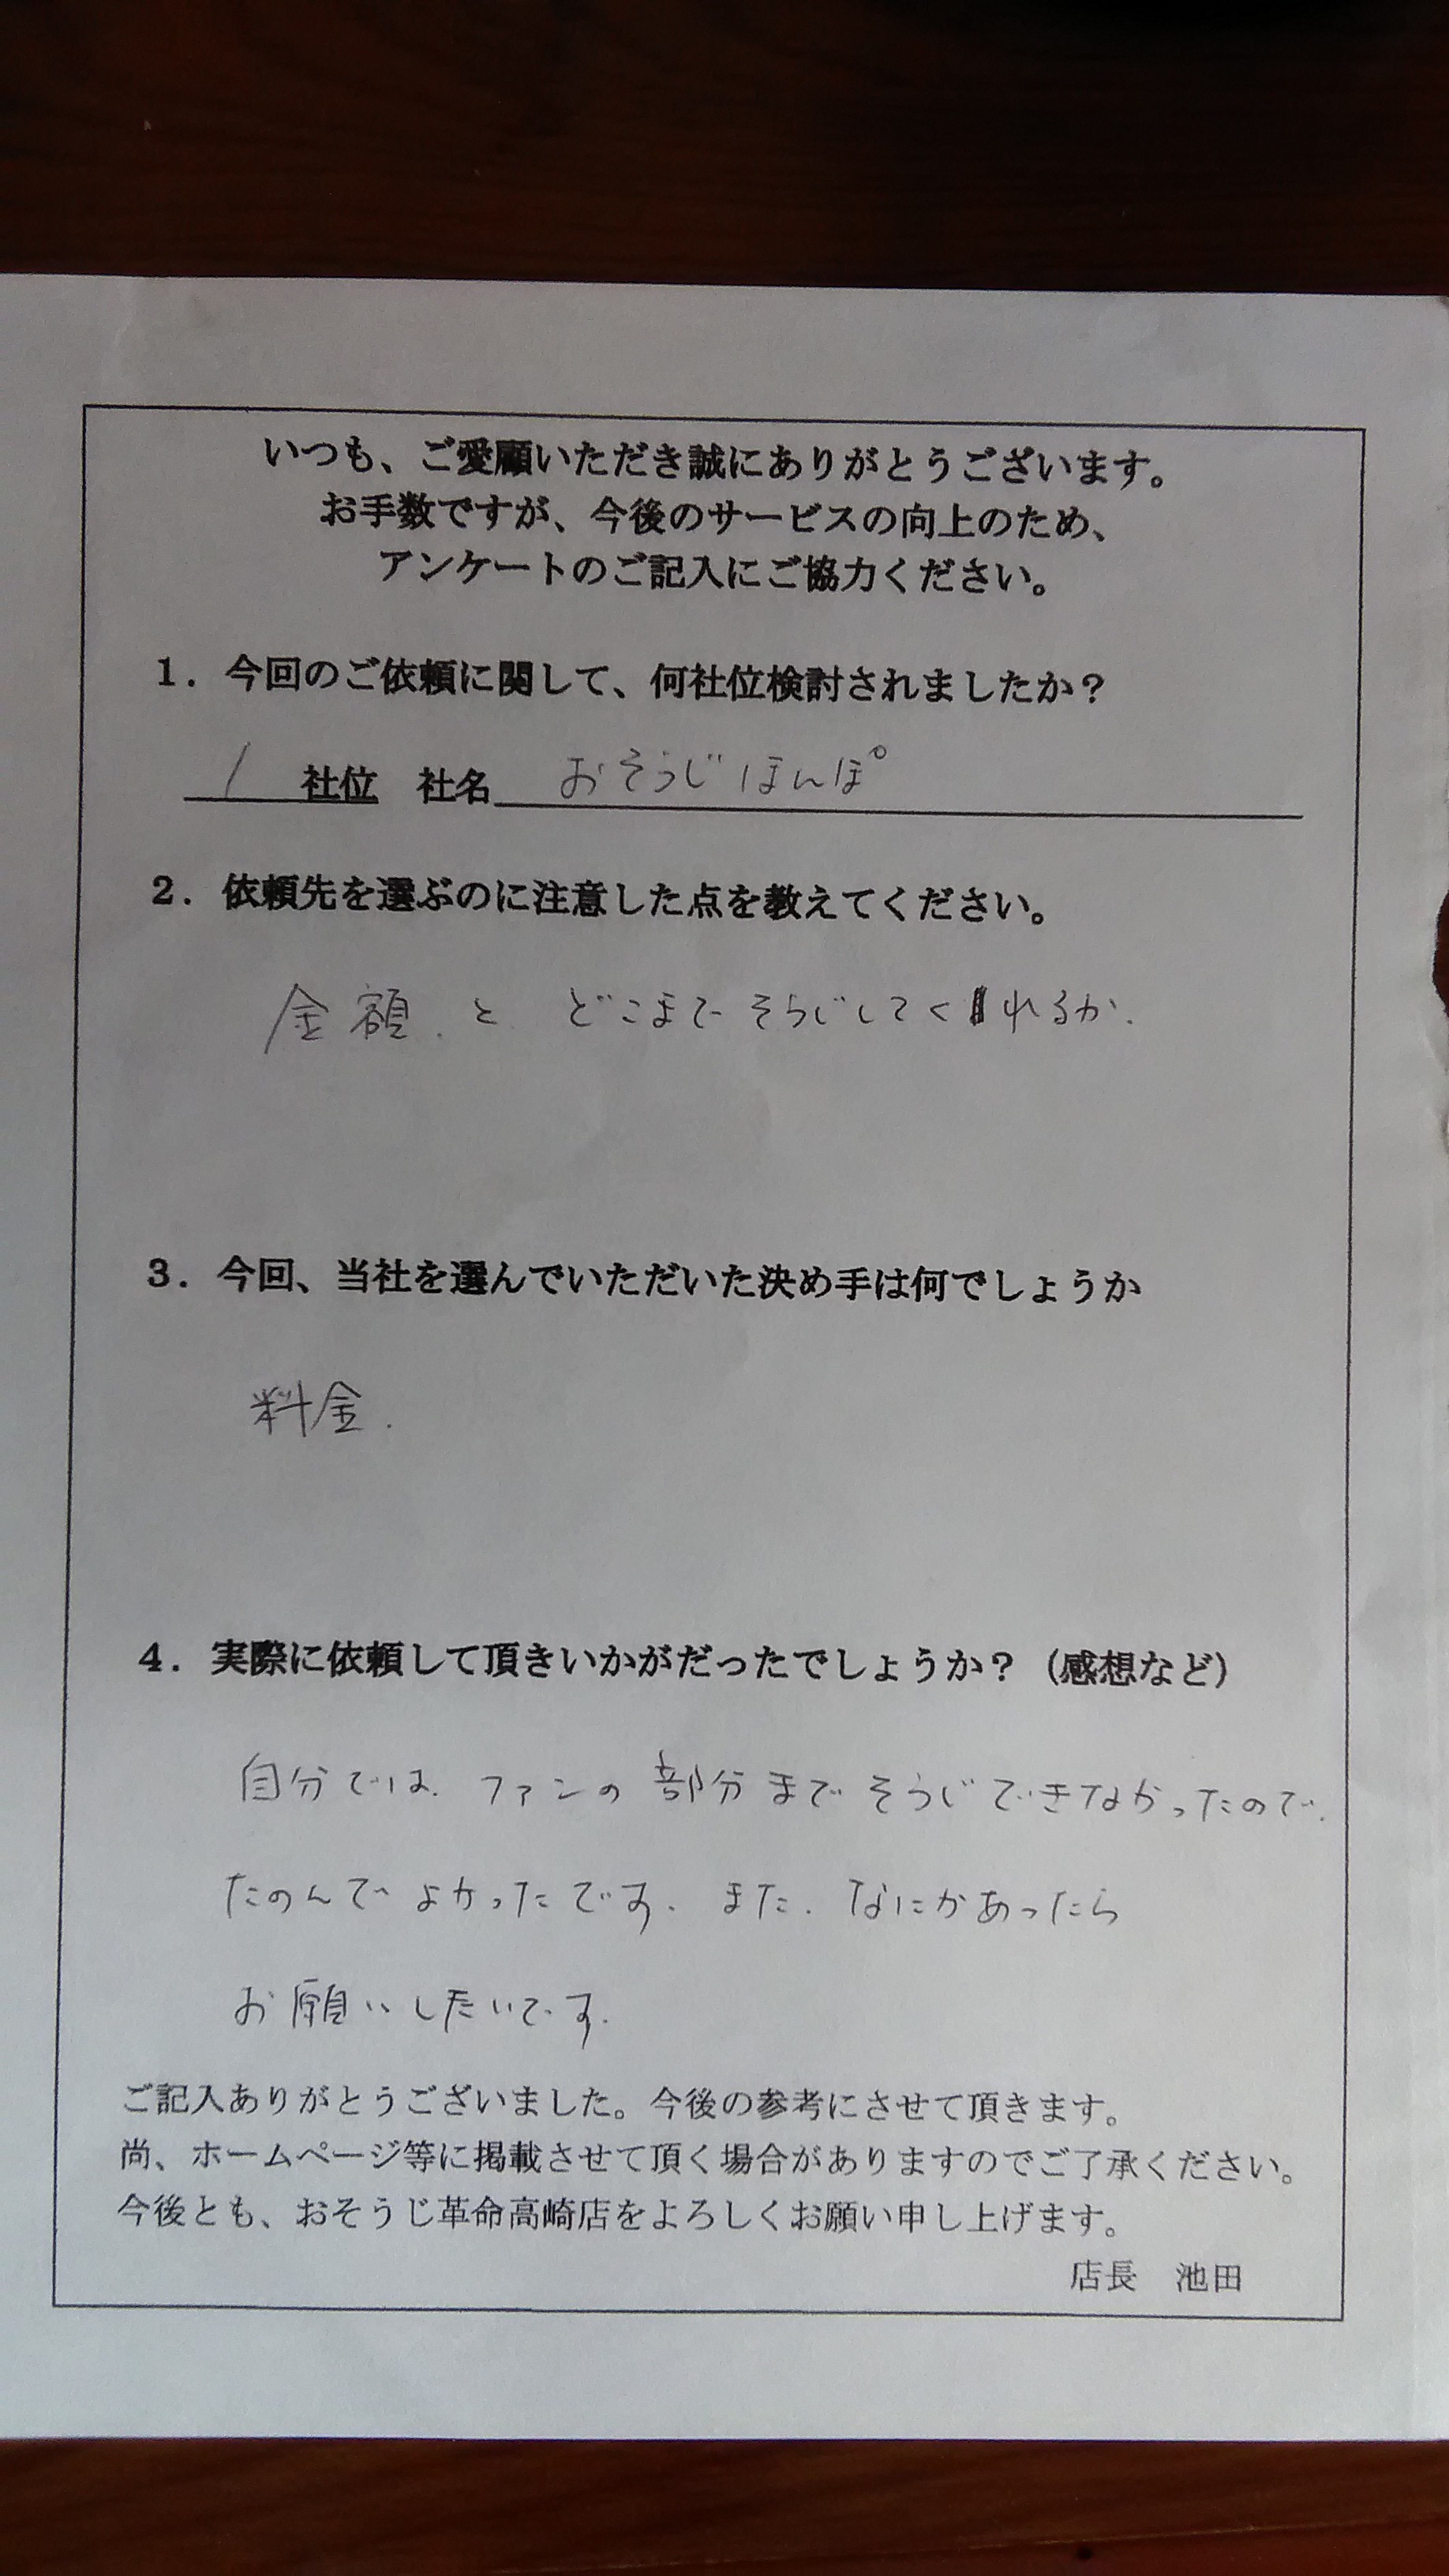 いつも、ご愛顧いただき誠にありがとうございます。
お手数ですが、今後のサービスの向上のため、
アンケートのご記入にご協力ください。
1．今回のご依頼に関して、何社位検討されましたか？
1 社位　社名 おそうじほんぽ
2．依頼先を選ぶのに注意した点を教えてください。
金額．と どこまでそうじしてくれるか．
3．今回、当社を選んでいただいた決め手は何でしょうか
料金．
4．実際に依頼して頂きいかがだったでしょうか？（感想など）
自分では．ファンの部分までそうじできなかったので．
たのんでよかったです．また．なにかあったら
お願いしたいです．
ご記入ありがとうございました。今後の参考にさせて頂きます。
尚、ホームページ等に掲載させて頂く場合がありますのでご了承ください。
今後とも、おそうじ革命高崎店をよろしくお願い申し上げます。
店長　池田